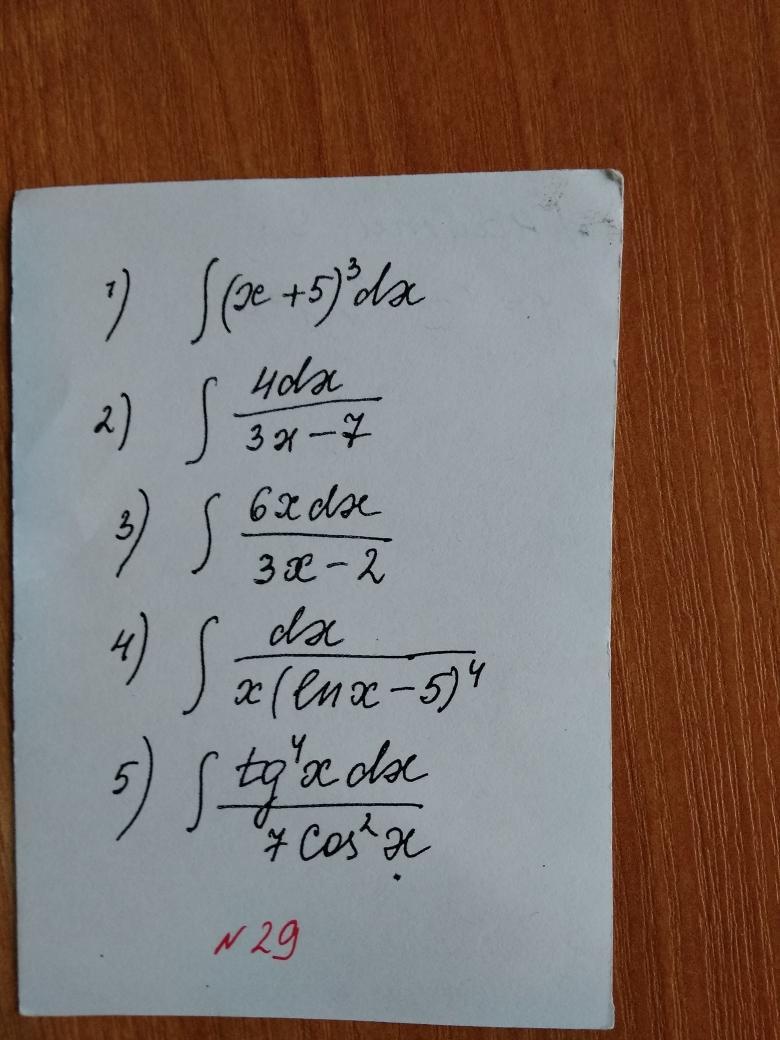 1) ∫(x+5)³dx
2) ∫ 4dx / 3x-7
3) ∫ 6xdx / 3x-2
4) ∫ dx / x(lnx-5)⁴
5) ∫ tg⁴xdx / 7cos²x
N29